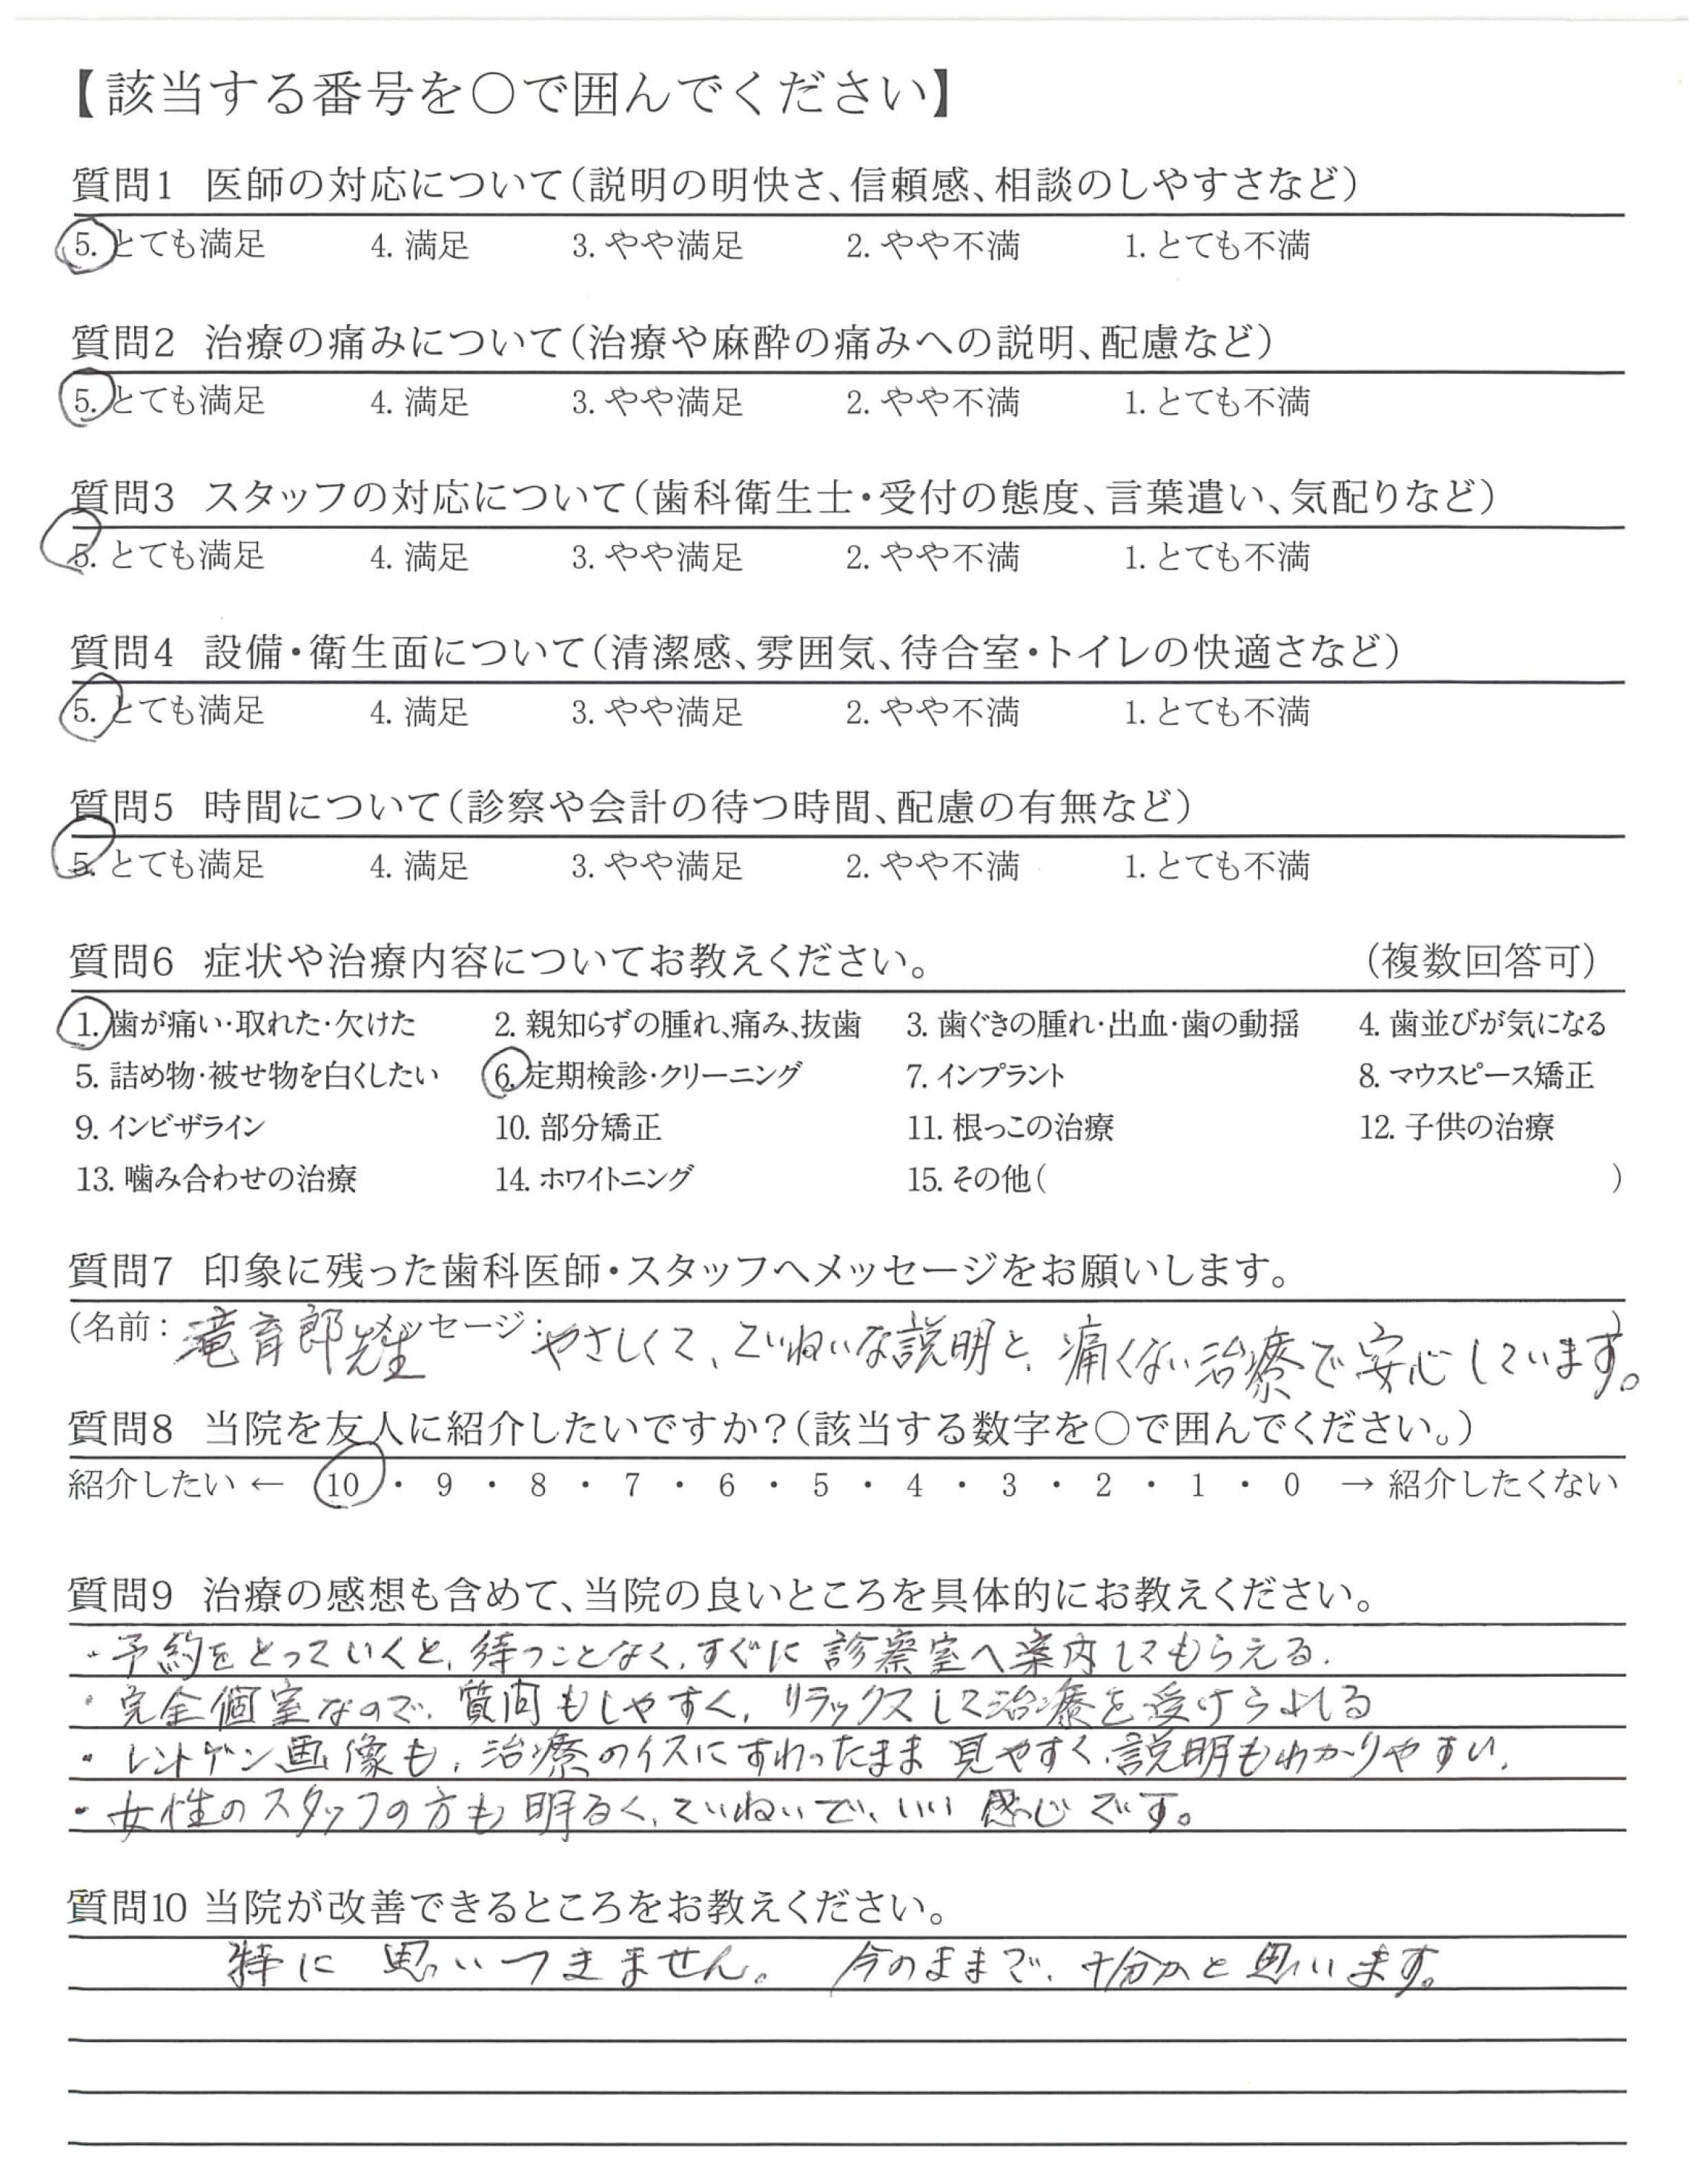 【該当する番号を〇で囲んでください】
質問1 医師の対応について(説明の明快さ、信頼感、相談のしやすさなど)
5. とても満足 4. 満足 3. やや満足 2. やや不満 1. とても不満
質問2 治療の痛みについて(治療や麻酔の痛みへの説明、配慮など)
5. とても満足 4. 満足 3. やや満足 2. やや不満 1. とても不満
質問3 スタッフの対応について(歯科衛生士・受付の態度、言葉遣い、気配りなど)
5. とても満足 4. 満足 3. やや満足 2. やや不満 1. とても不満
質問4 設備・衛生面について(清潔感、雰囲気、待合室・トイレの快適さなど)
5. とても満足 4. 満足 3. やや満足 2. やや不満 1. とても不満
質問5 時間について(診察や会計の待つ時間、配慮の有無など)
5. とても満足 4. 満足 3. やや満足 2. やや不満 1. とても不満
質問6 症状や治療内容についてお教えください。 (複数回答可)
1. 歯が痛い・取れた・欠けた 2. 親知らずの腫れ、痛み、抜歯 3. 歯ぐきの腫れ・出血・歯の動揺 4. 歯並びが気になる
5. 詰め物・被せ物を白くしたい 6. 定期検診・クリーニング 7. インプラント 8. マウスピース矯正
9. インビザライン 10. 部分矯正 11. 根っこの治療 12. 子供の治療
13. 噛み合わせの治療 14. ホワイトニング 15. その他( )
質問7 印象に残った歯科医師・スタッフへメッセージをお願いします。
(名前: 滝育郎先生 メッセージ: やさしくて、ていねいな説明と、痛くない治療で安心しています。)
質問8 当院を友人に紹介したいですか?(該当する数字を〇で囲んでください。)
紹介したい ← 10 ・ 9 ・ 8 ・ 7 ・ 6 ・ 5 ・ 4 ・ 3 ・ 2 ・ 1 ・ 0 → 紹介したくない
質問9 治療の感想も含めて、当院の良いところを具体的にお教えください。
・予約をとっていくと、待つことなく、すぐに診察室へ案内してもらえる.
・完全個室なので、質問もしやすく、リラックスして治療を受けられる
・レントゲン画像も、治療のイスにすわったまま見やすく、説明もわかりやすい.
・女性のスタッフの方も明るく、ていねいで、いい感じです。
質問10 当院が改善できるところをお教えください。
特に思いつきません。 今のままで、十分かと思います。